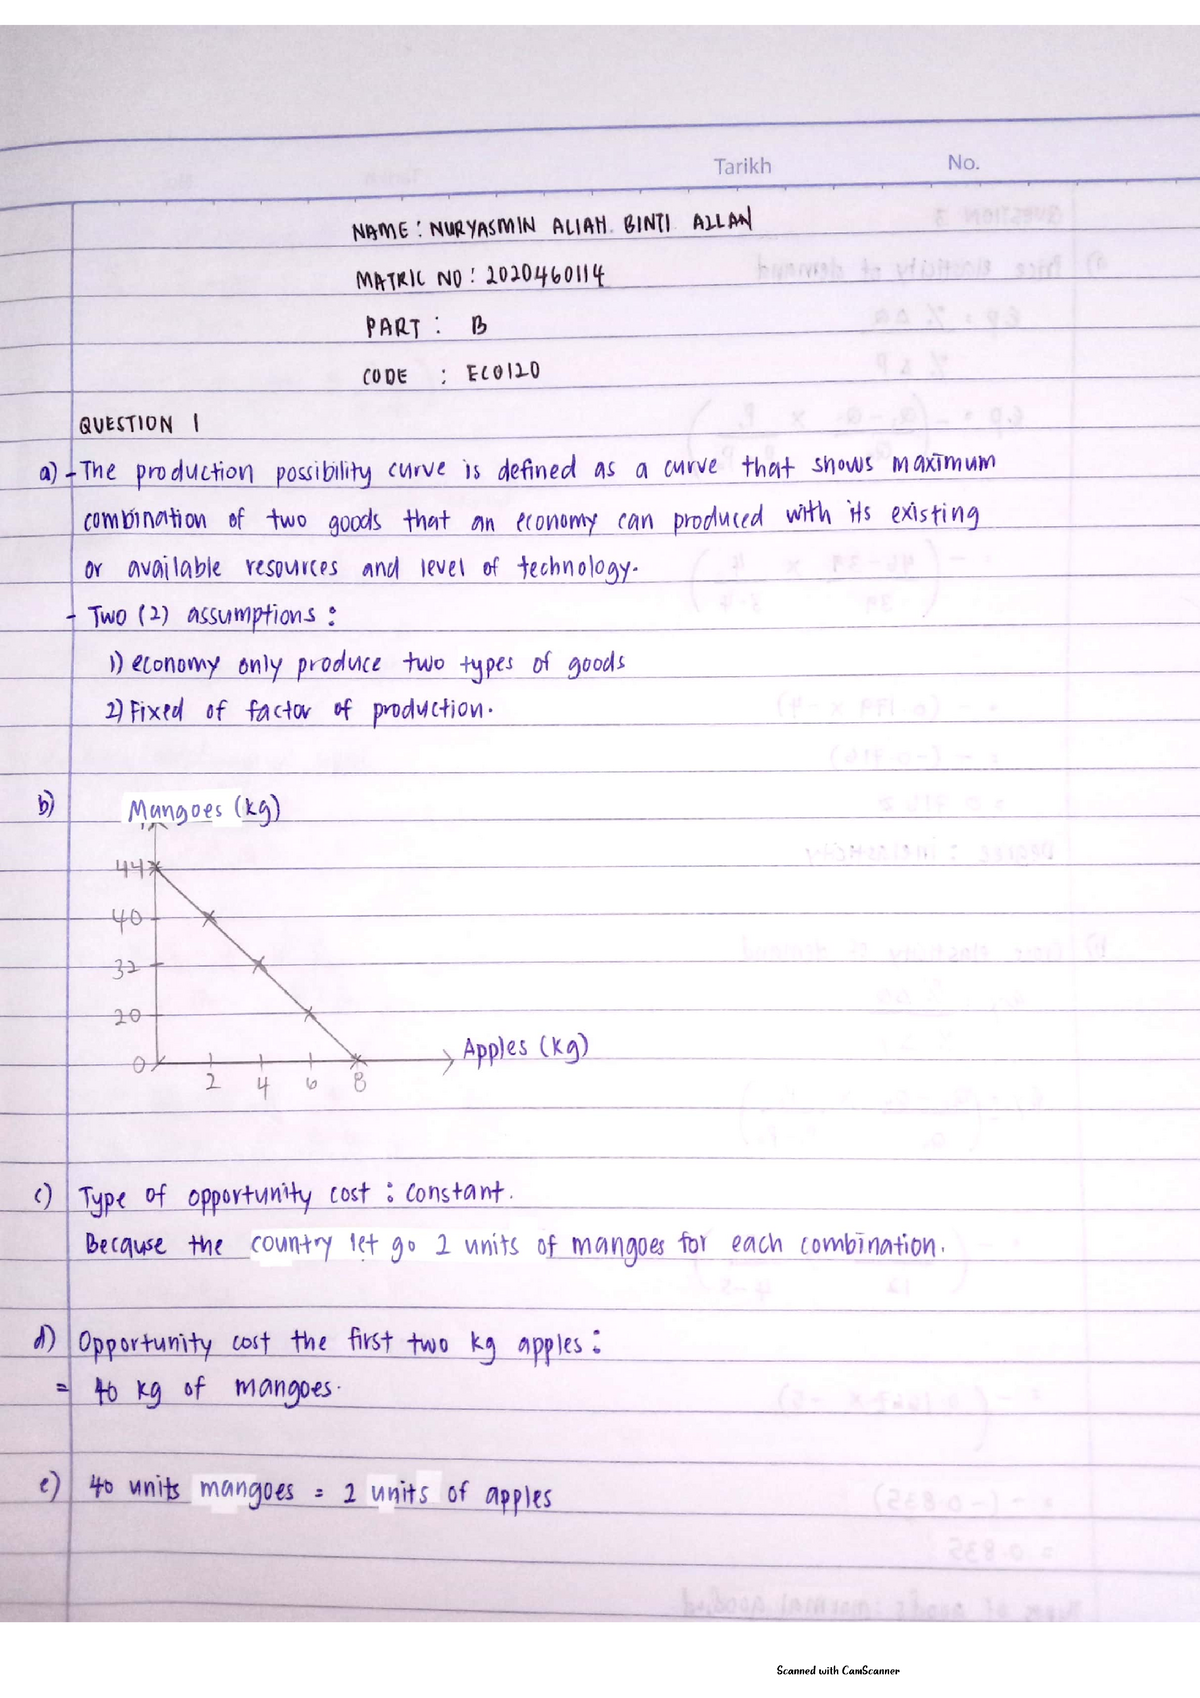 Tarikh No.
NAME : NURYASMIN ALIAH BINTI ALLAN
MATRIC NO : 2020460114
PART : B
CODE : ECO120
QUESTION 1
a) - The production possibility curve is defined as a curve that shows maximum
combination of two goods that an economy can produced with its existing
or available resources and level of technology.
- Two (2) assumptions :
1) economy only produce two types of goods
2) Fixed of factor of production.
b) Mangoes (kg)
44
40
32
20
0
Apples (kg)
2 4 6 8
c) Type of opportunity cost : Constant.
Because the country let go 2 units of mangoes for each combination.
d) Opportunity cost the first two kg apples :
= 40 kg of mangoes.
e) 40 units mangoes = 2 units of apples
Scanned with CamScanner